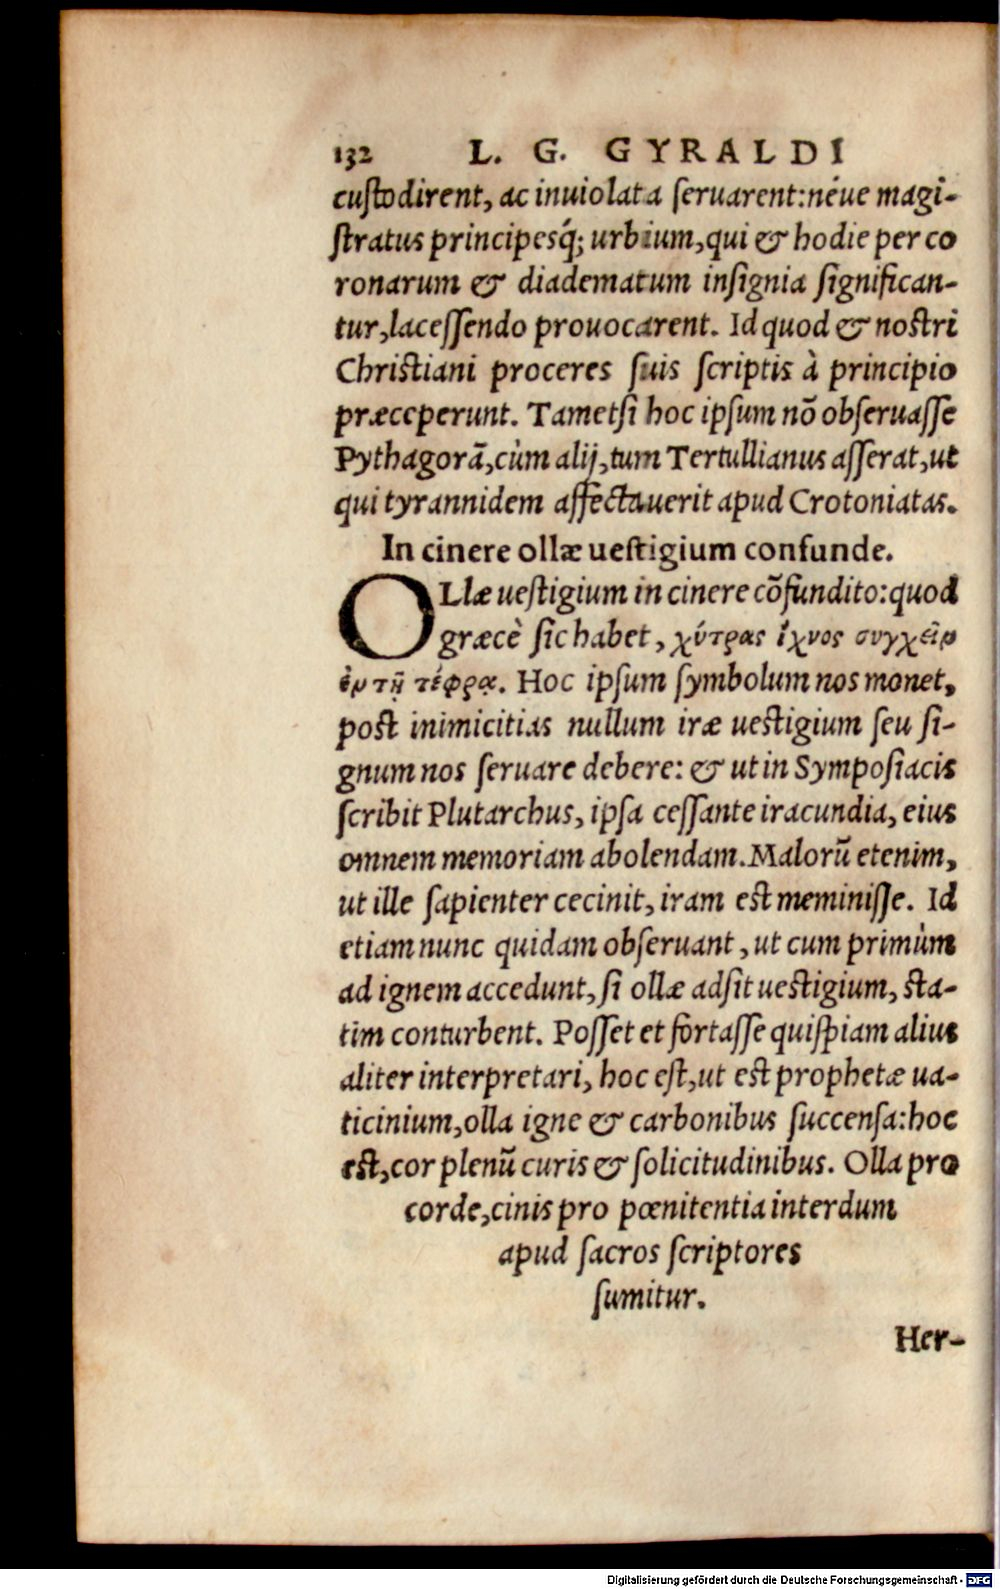 132 L. G. GYRALDI
custodirent, ac inuiolata seruarent: néue magi-
stratus principesq́; urbium, qui & hodie per co
ronarum & diadematum insignia significan-
tur, lacessendo prouocarent. Id quod & nostri
Christiani proceres suis scriptis à principio
præceperunt. Tametsi hoc ipsum nõ obseruasse
Pythagorã, cùm alij, tum Tertullianus asserat, ut
qui tyrannidem affectauerit apud Crotoniatas.
In cinere ollæ uestigium confunde.
OLlæ uestigium in cinere cõfundito: quod
græcè sic habet, χύτρας ἴχνος συγχεῖν
ἐν τῇ τέφρᾳ. Hoc ipsum symbolum nos monet,
post inimicitias nullum iræ uestigium seu si-
gnum nos seruare debere: & ut in Symposiacis
scribit Plutarchus, ipsa cessante iracundia, eius
omnem memoriam abolendam. Malorũ etenim,
ut ille sapienter cecinit, iram est meminisse. Id
etiam nunc quidam obseruant, ut cum primùm
ad ignem accedunt, si ollæ adsit uestigium, sta-
tim conturbent. Posset et fortasse quispiam alius
aliter interpretari, hoc est, ut est prophetæ ua-
ticinium, olla igne & carbonibus succensa: hoc
est, cor plenũ curis & solicitudinibus. Olla pro
corde, cinis pro pœnitentia interdum
apud sacros scriptores
sumitur.
Her-
Digitalisierung gefördert durch die Deutsche Forschungsgemeinschaft - DFG